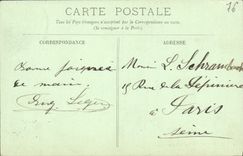 16
CARTE POSTALE
Tous les Pays étrangers n'acceptent pas la Correspondance au recto.
(Se renseigner à la Poste).
CORRESPONDANCE
ADRESSE
Bonne poignée
de main,
Eug. Léger
L. Schram
15 Rue de la Pépinière
à Paris
Seine